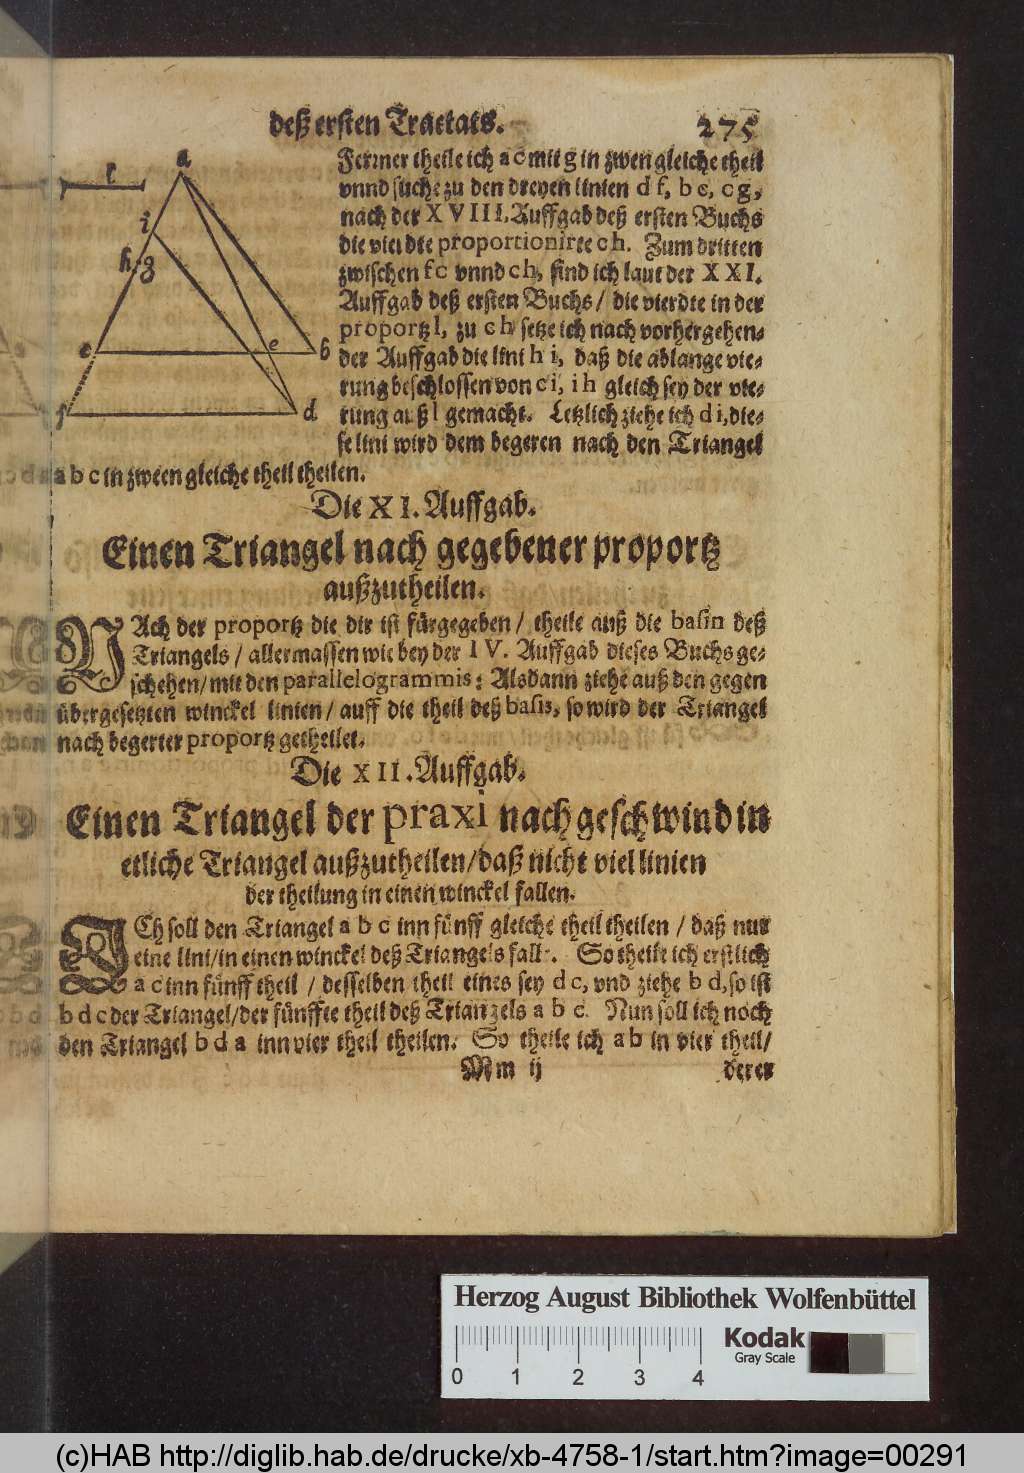 deß ersten Tractats.
275
Ferrner theile ich a c mit g in zwen gleiche theil
vnnd suche zu den dreyen linien d f, b e, c g,
nach der XVIII. Auffgab deß ersten Buchs
die vierdte proportionirte c h. Zum dritten
zwischen f c vnnd c h, find ich laut der XXI.
Auffgab deß ersten Buchs / die vierdte in der
proportz l, zu c h setze ich nach vorhergehen-
der Auffgab die lini h i, daß die ablange vie-
rung beschlossen von c i, i h gleich sey der vie-
rung auß l gemacht. Letzlich ziehe ich d i, die-
se lini wird dem begeren nach den Triangel
a b c in zween gleiche theil theilen.
l
a
i
h
g
c
e
b
f
d
Die XI. Auffgab.
Einen Triangel nach gegebener proportz
außzutheilen.
NAch der proportz die dir ist fürgegeben / theile auß die basin deß
Triangels / allermassen wie bey der IV. Auffgab dieses Buchs ge-
schehen / mit den parallelogrammis: Alsdann ziehe auß den gegen
übergesetzten winckel linien / auff die theil deß basis, so wird der Triangel
nach begerter proportz getheilet.
Die XII. Auffgab.
Einen Triangel der praxi nach geschwind in
etliche Triangel außzutheilen / daß nicht viel linien
der theilung in einen winckel fallen.
ICh soll den Triangel a b c inn fünff gleiche theil theilen / daß nur
eine lini / in einen winckel deß Triangels falle. So theile ich erstlich
a c inn fünff theil / desselben theil eines sey d c, vnd ziehe b d, so ist
b d c der Triangel / der fünffte theil deß Triangels a b c. Nun soll ich noch
den Triangel b d a inn vier theil theilen. So theile ich a b in vier theil /
Mm ij
derer
Herzog August Bibliothek Wolfenbüttel
0 1 2 3 4
Kodak
Gray Scale
(c)HAB http://diglib.hab.de/drucke/xb-4758-1/start.htm?image=00291